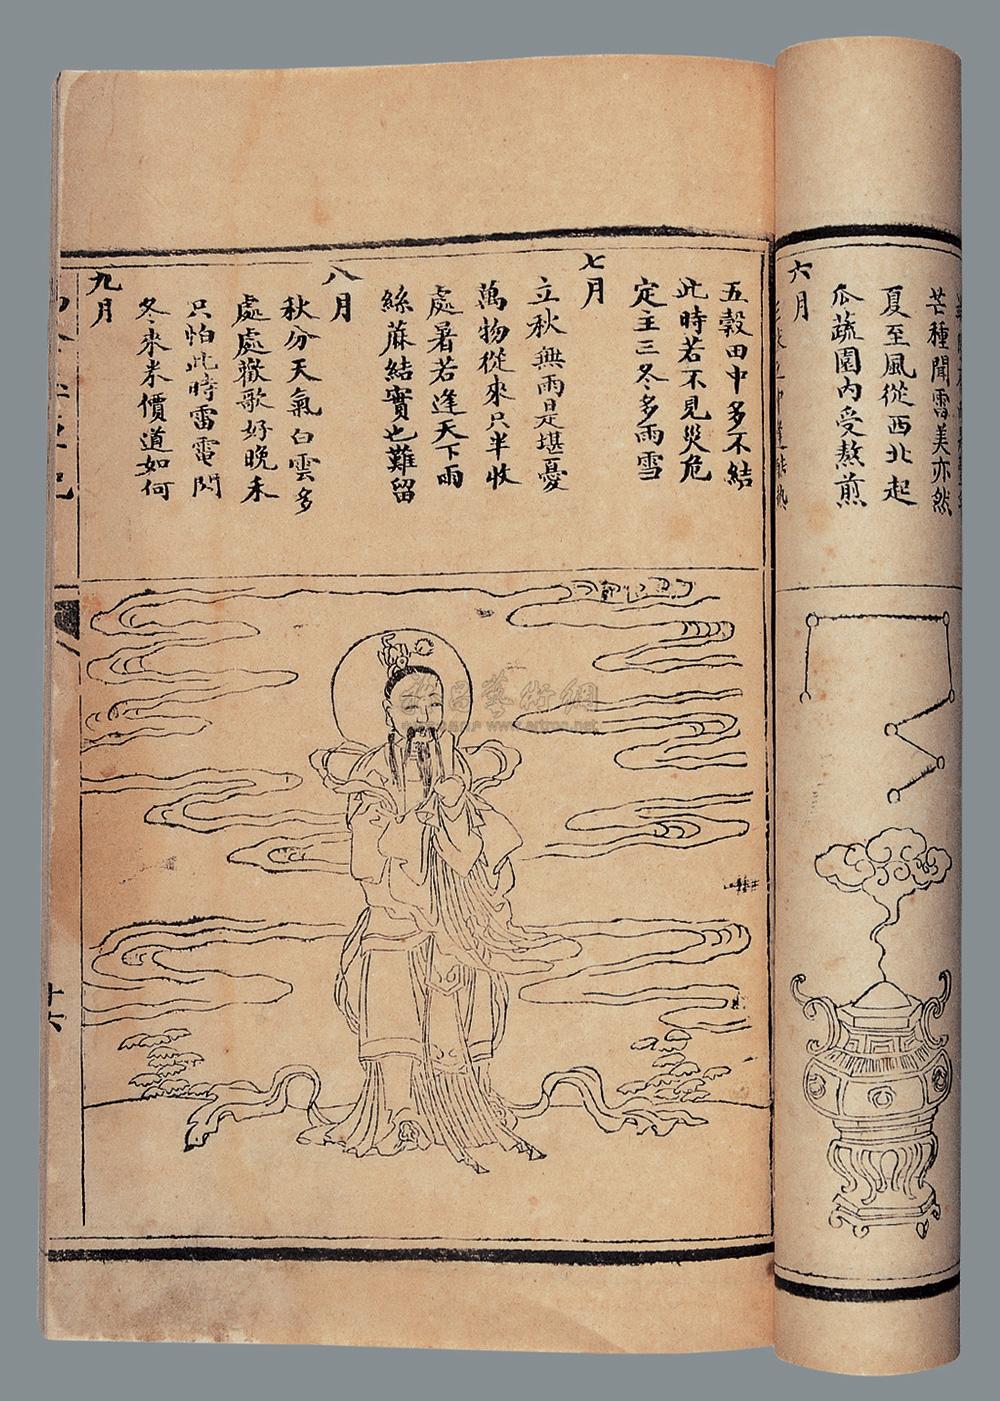 芒種聞雷美亦然
夏至風從西北起
瓜蔬園內受熬煎
六月
五穀田中多不結
此時若不見災危
定主三冬多雨雪
七月
立秋無雨是堪憂
萬物從來只半收
處暑若逢天下雨
絲蔴結實也難留
八月
秋分天氣白雲多
處處歡歌好晚禾
只怕此時雷電閃
冬來米價道如何
九月
十六
雅昌藝術網
www.artron.net